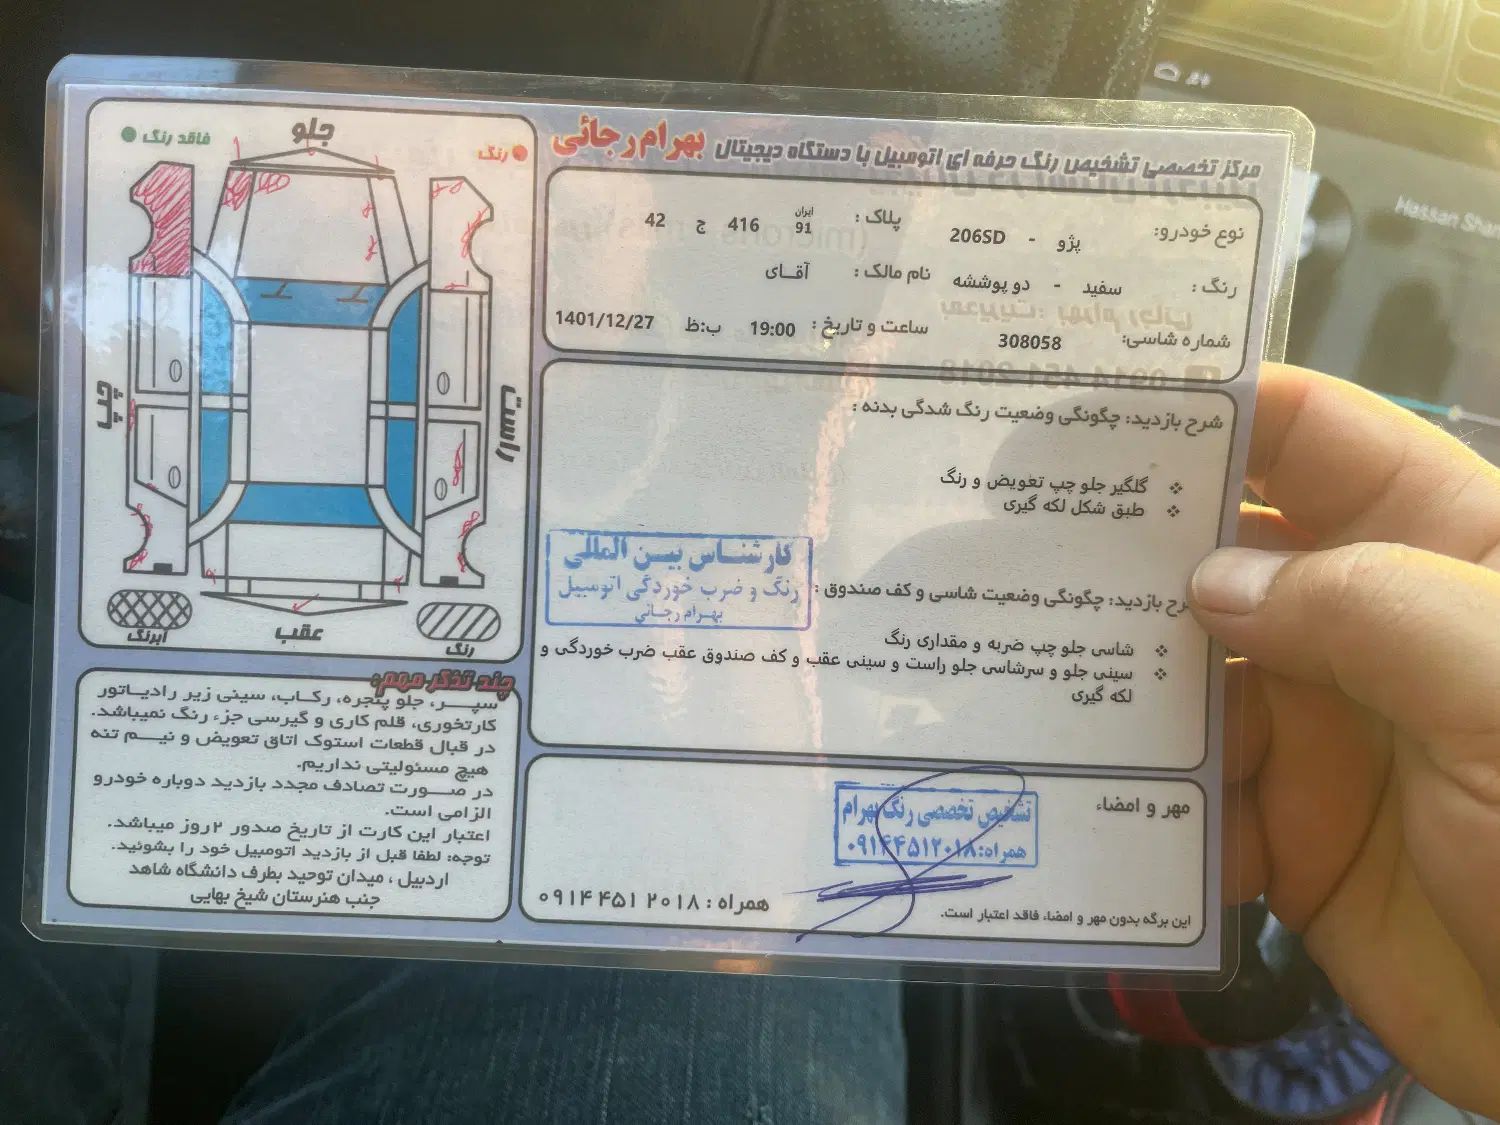 مرکز تخصصی تشخیص رنگ حرفه ای اتومبیل با دستگاه دیجیتال بهرام رجائی
نوع خودرو: پژو - 206SD پلاک : ایران 91 416 ج 42
رنگ : سفید - دو پوششه نام مالک : آقـای
شماره شاسی: 308058 ساعت و تاریخ : 19:00 ب:ظ 1401/12/27
شرح بازدید: چگونگی وضعیت رنگ شدگی بدنه :
گلگیر جلو چپ تعویض و رنگ
طبق شکل لکه گیری
رح بازدید: چگونگی وضعیت شاسی و کف صندوق :
کارشناس بین المللی
رنگ و ضرب خوردگی اتومبیل
بهرام رجائی
شاسی جلو چپ ضربه و مقداری رنگ
سینی جلو و سرشاسی جلو راست و سینی عقب و کف صندوق عقب ضرب خوردگی و
لکه گیری
مهر و امضاء
تشخیص تخصصی رنگ بهرام
همراه:۰۹۱۴۴۵۱۲۰۱۸
همراه : ۰۹۱۴ ۴۵۱ ۲۰۱۸
این برگه بدون مهر و امضاء فاقد اعتبار است.
رنگ
جلو
فاقد رنگ
راست
چپ
رنگ
عقب
آبرنگ
چند تذکر مهم:
سپـــر، جلو پنجره، رکاب، سینی زیر رادیـاتور
کارتخوری، قلم کاری و گیرسی جزء رنگ نمیباشد.
در قبال قطعات استوک اتاق تعویض و نیـم تنه
هیچ مسئولیتی نداریم.
در صــورت تصادف مجدد بازدید دوباره خودرو
الزامی است.
اعتبار این کارت از تاریخ صدور ۲ روز میباشد.
توجه: لطفا قبل از بازدید اتومبیل خود را بشوئید.
اردبیل ، میدان توحید بطرف دانشگاه شاهد
جنب هنرستان شیخ بهایی